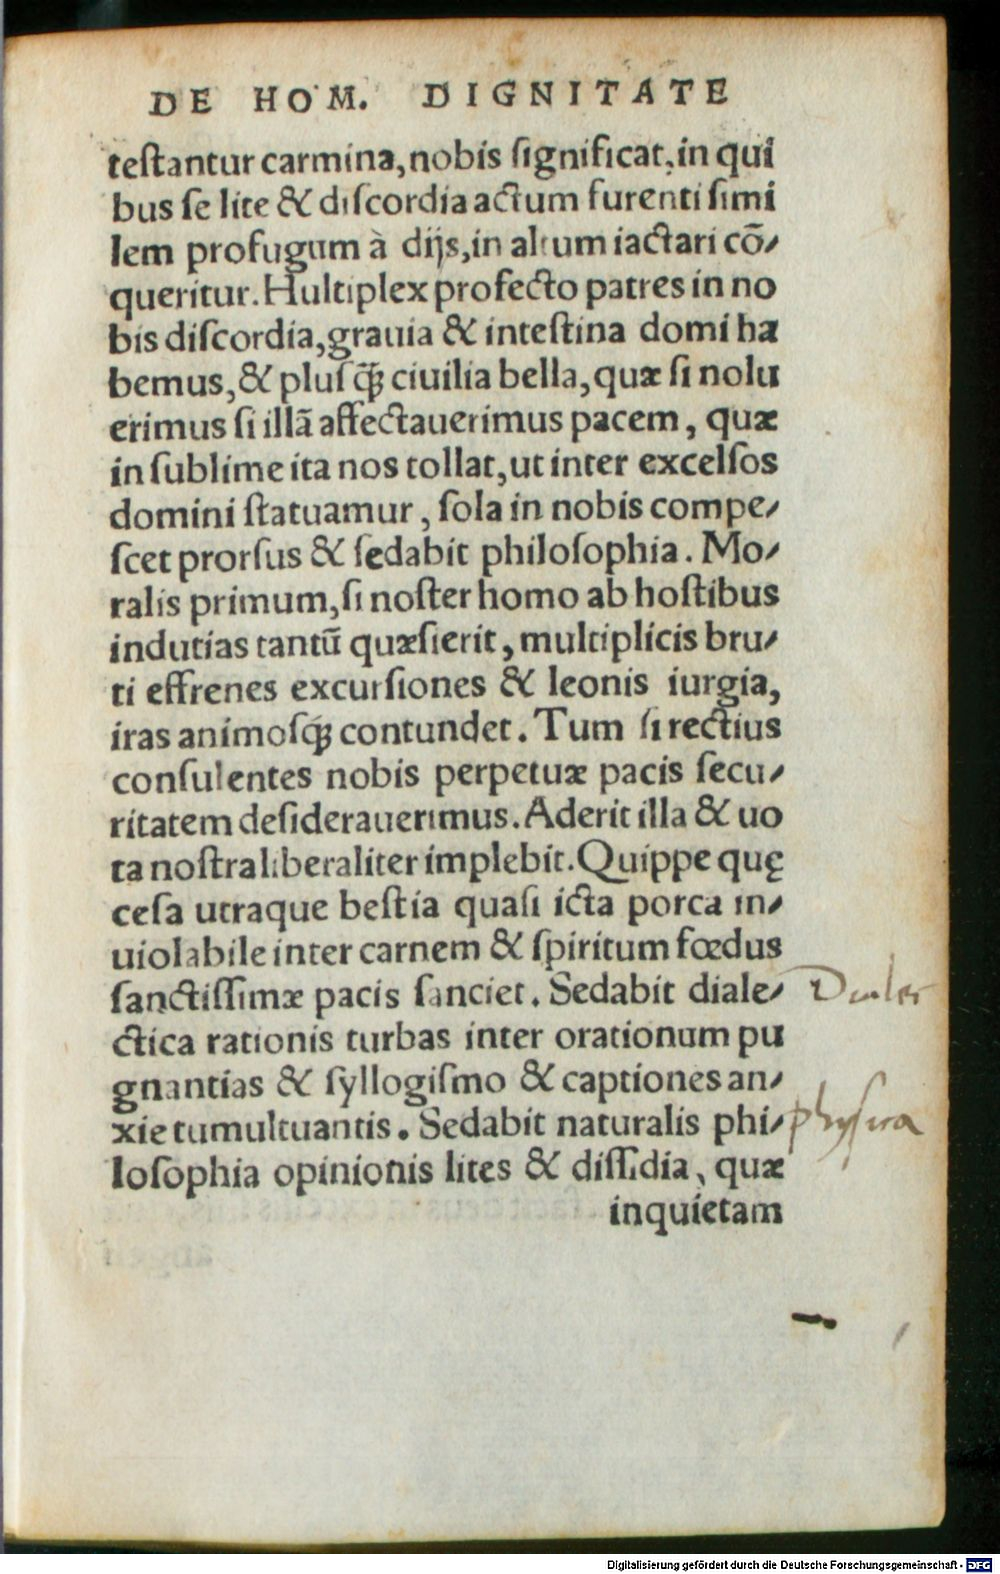 DE HOM. DIGNITATE
teſtantur carmina, nobis ſignificat, in qui
bus ſe lite & diſcordia actum furenti ſimi
lem profugum à dijs, in altum iactari cō/
queritur. Hultiplex profecto patres in no
bis diſcordia, grauia & inteſtina domi ha
bemus, & pluſq̃ꝫ ciuilia bella, quæ ſi nolu
erimus ſi illā affectauerimus pacem, quæ
in ſublime ita nos tollat, ut inter excelſos
domini ſtatuamur, ſola in nobis compe/
ſcet prorſus & ſedabit philoſophia. Mo/
ralis primum, ſi noſter homo ab hoſtibus
indutias tantū quæſierit, multiplicis bru/
ti effrenes excurſiones & leonis iurgia,
iras animoſqꝫ contundet. Tum ſi rectius
conſulentes nobis perpetuæ pacis ſecu/
ritatem deſiderauerimus. Aderit illa & uo
ta noſtra liberaliter implebit. Quippe quę
ceſa utraque beſtia quaſi icta porca in/
uiolabile inter carnem & ſpiritum fœdus
ſanctiſſimæ pacis ſanciet. Sedabit diale/
ctica rationis turbas inter orationum pu
gnantias & ſyllogiſmo & captiones an/
xie tumultuantis. Sedabit naturalis phi/
loſophia opinionis lites & diſſidia, quæ
inquietam
physica
Digitalisierung gefördert durch die Deutsche Forschungsgemeinschaft - DFG